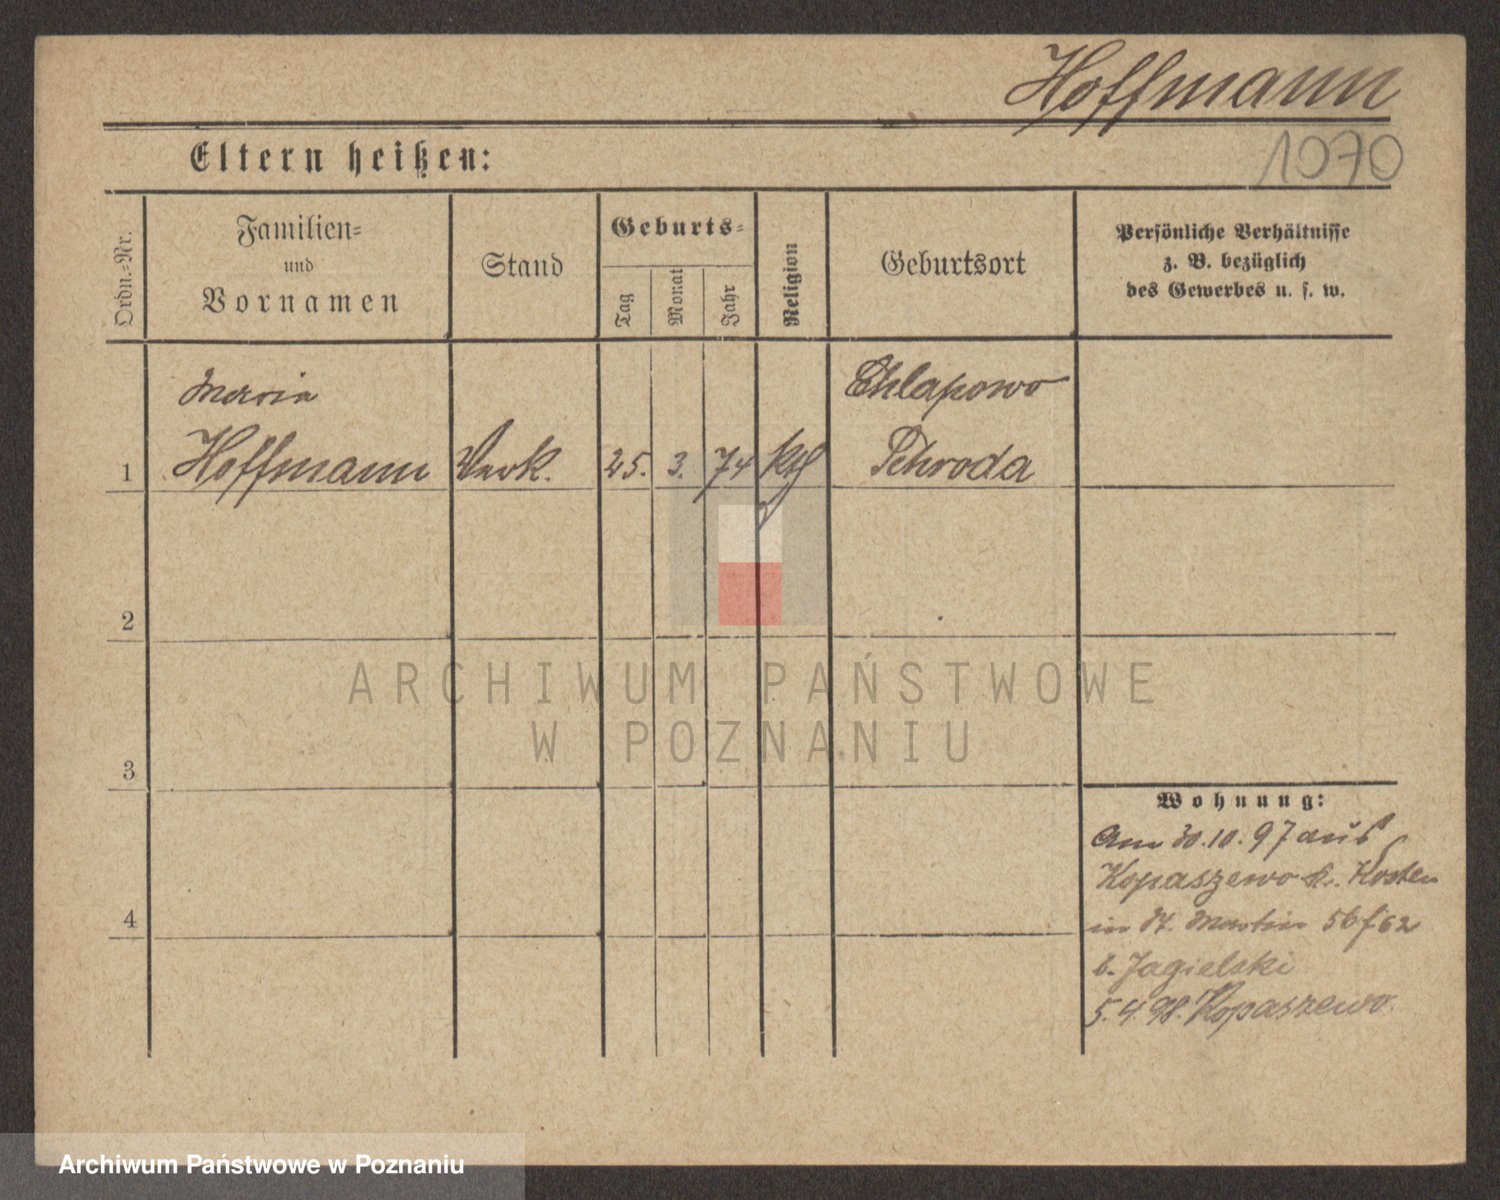 Hoffmann
1070
Eltern heißen:
Ordn.-Nr.
Familien-
und
Vornamen
Stand
Geburts-
Tag
Monat
Jahr
Religion
Geburtsort
Persönliche Verhältnisse
z. B. bezüglich
des Gewerbes u. s. w.
Maria
Chlapowo
1 Hoffmann Verk. 25. 3. 74 kth Schroda
2
ARCHIWUM PAŃSTWOWE
W POZNANIU
3
Wohnung:
Am 30.10.97 aus
Kopaszewo Kr. Kosten
in St. Martin 56 f 62
4
b. Jagielski
5.4.98. Kopaszewo.
Archiwum Państwowe w Poznaniu